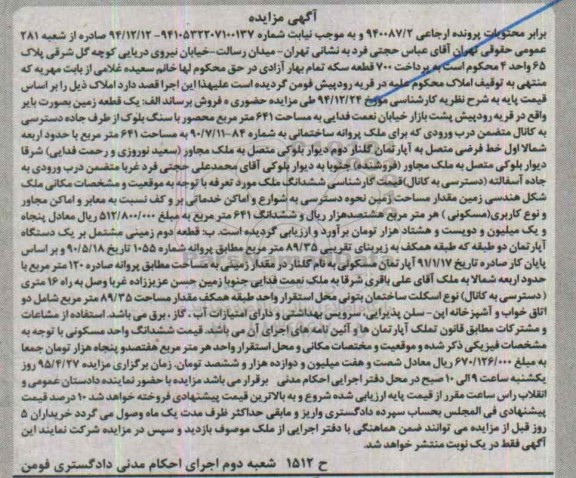 آگهی مزایده
برابر محتویات پرونده ارجاعی ۹۴۰۰۸۷/۲ و به موجب نیابت شماره ۹۴۱۰۵۳۲۲۰۷۱۰۰۱۳۷-۹۴/۱۲/۱۲ صادره از شعبه ۲۸۱
عمومی حقوقی تهران آقای عباس حجتی فرد به نشانی تهران- میدان رسالت-خیابان نیروی دریایی کوچه گل شرقی پلاک
۶۵ واحد ۴ محکوم است به پرداخت ۷۰۰ قطعه سکه تمام بهار آزادی در حق محکوم لها خانم سعیده غلامی از بابت مهریه که
منتهی به توقیف املاک محکوم علیه در قریه رودپیش فومن گردیده است علیهذا این اجرا قصد دارد املاک ذیل را بر اساس
قیمت پایه به شرح نظریه کارشناسی مورخ ۹۴/۱۲/۲۴ طی مزایده حضوری به فروش برساند الف: یک قطعه زمین بصورت بایر
واقع در قریه رودپیش پشت بازار خیابان نعمت فدایی به مساحت ۶۴۱ متر مربع محصور با سنگ بلوک از طرف جاده دسترسی
به کانال متضمن درب ورودی که برای ملک پروانه ساختمانی به شماره ۸۴-۹۰/۷/۱۱ به مساحت ۶۴۱ متر مربع با حدود اربعه
شمالا اول خط فرضی متصل به آپارتمان گلنار دوم دیوار بلوکی متصل به ملک مجاور (سعید نوروزی و رحمت فدایی) شرقا
دیوار بلوکی متصل به ملک مجاور (فروشنده) جنوبا به دیوار بلوکی آقای محمدعلی حجتی فرد غربا متضمن درب ورودی به
جاده آسفالته (دسترسی به کانال)قیمت کارشناسی ششدانگ ملک مورد تعرفه با توجه به موقعیت و مشخصات مکانی ملک
شکل هندسی زمین مقدار مساحت زمین نحوه دسترسی به شوارع و اماکن خدماتی بر و کف نسبت به معابر و اماکن مجاور
و نوع کاربری(مسکونی ) هر متر مربع هشتصدهزار ریال و ششدانگ ۶۴۱ متر مربع به مبلغ ۵۱۲/۸۰۰/۰۰۰ ریال معادل پنجاه
و یک میلیون و دویست و هشتاد هزار تومان برآورد و ارزیابی گردیده است. ب: قطعه دوم زمینی مشتمل بر یک دستگاه
آپارتمان دو طبقه که طبقه همکف به زیربنای تقریبی ۸۹/۳۵ متر مربع مطابق پروانه شماره ۱۰۵۵ تاریخ ۹۰/۵/۱۸ و بر اساس
پایان کار صادره تاریخ ۹۱/۱/۱۷ آپارتمان مسکونی به نام گلنار در مقدار زمینی به مساحت مطابق پروانه صادره ۱۲۰ متر مربع با
حدود اربعه شمالا به ملک آقای علی باقری شرقا به ملک نعمت فدایی جنوبا زمین حسن عزیززاده غربا وصل به راه ۱۶ متری
( دسترسی به کانال) نوع اسکلت ساختمان بتونی محل استقرار واحد طبقه همکف مقدار مساحت ۸۹/۳۵ متر مربع شامل دو
اتاق خواب و آشپزخانه اپن- سلن پذیرایی، سرویس بهداشتی و دارای امتیازات آب ، گاز ، برق می باشد. استفاده از مشاعات
و مشترکات مطابق قانون تملک آپارتمان ها و آئین نامه های اجرای آن می باشد. قیمت ششدانگ واحد مسکونی با توجه به
مشخصات فیزیکی ذکر شده و موقعیت و مختصات مکانی و محل استقرار واحد هر متر مربع هفتصدو پنجاه هزار تومان جمعا
به مبلغ ۶۷۰/۱۲۶/۰۰۰ ریال معادل شصت و هفت میلیون و دوازده هزار و ششصد تومان. زمان برگزاری مزایده ۹۵/۴/۲۷ روز
یکشنبه ساعت ۹ الی ۱۰ صبح در محل دفتر اجرایی احکام مدنی برقرار می باشد مزایده با حضور نماینده دادستان عمومی و
انقلاب راس ساعت مقرر از قیمت پایه ارزیابی شده شروع و به بالاترین قیمت پیشنهادی فروخته خواهد شد ۱۰ درصد قیمت
پیشنهادی فی المجلس بحساب سپرده دادگستری واریز و مابقی حداکثر ظرف مدت یک ماه وصول می گردد خریداران ۵
روز قبل از مزایده می توانند ضمن هماهنگی با دفتر اجرایی از ملک موصوف بازدید و سپس در مزایده شرکت نمایند این
آگهی فقط در یک نوبت منتشر خواهد شد.
ح ۱۵۱۲ شعبه دوم اجرای احکام مدنی دادگستری فومن